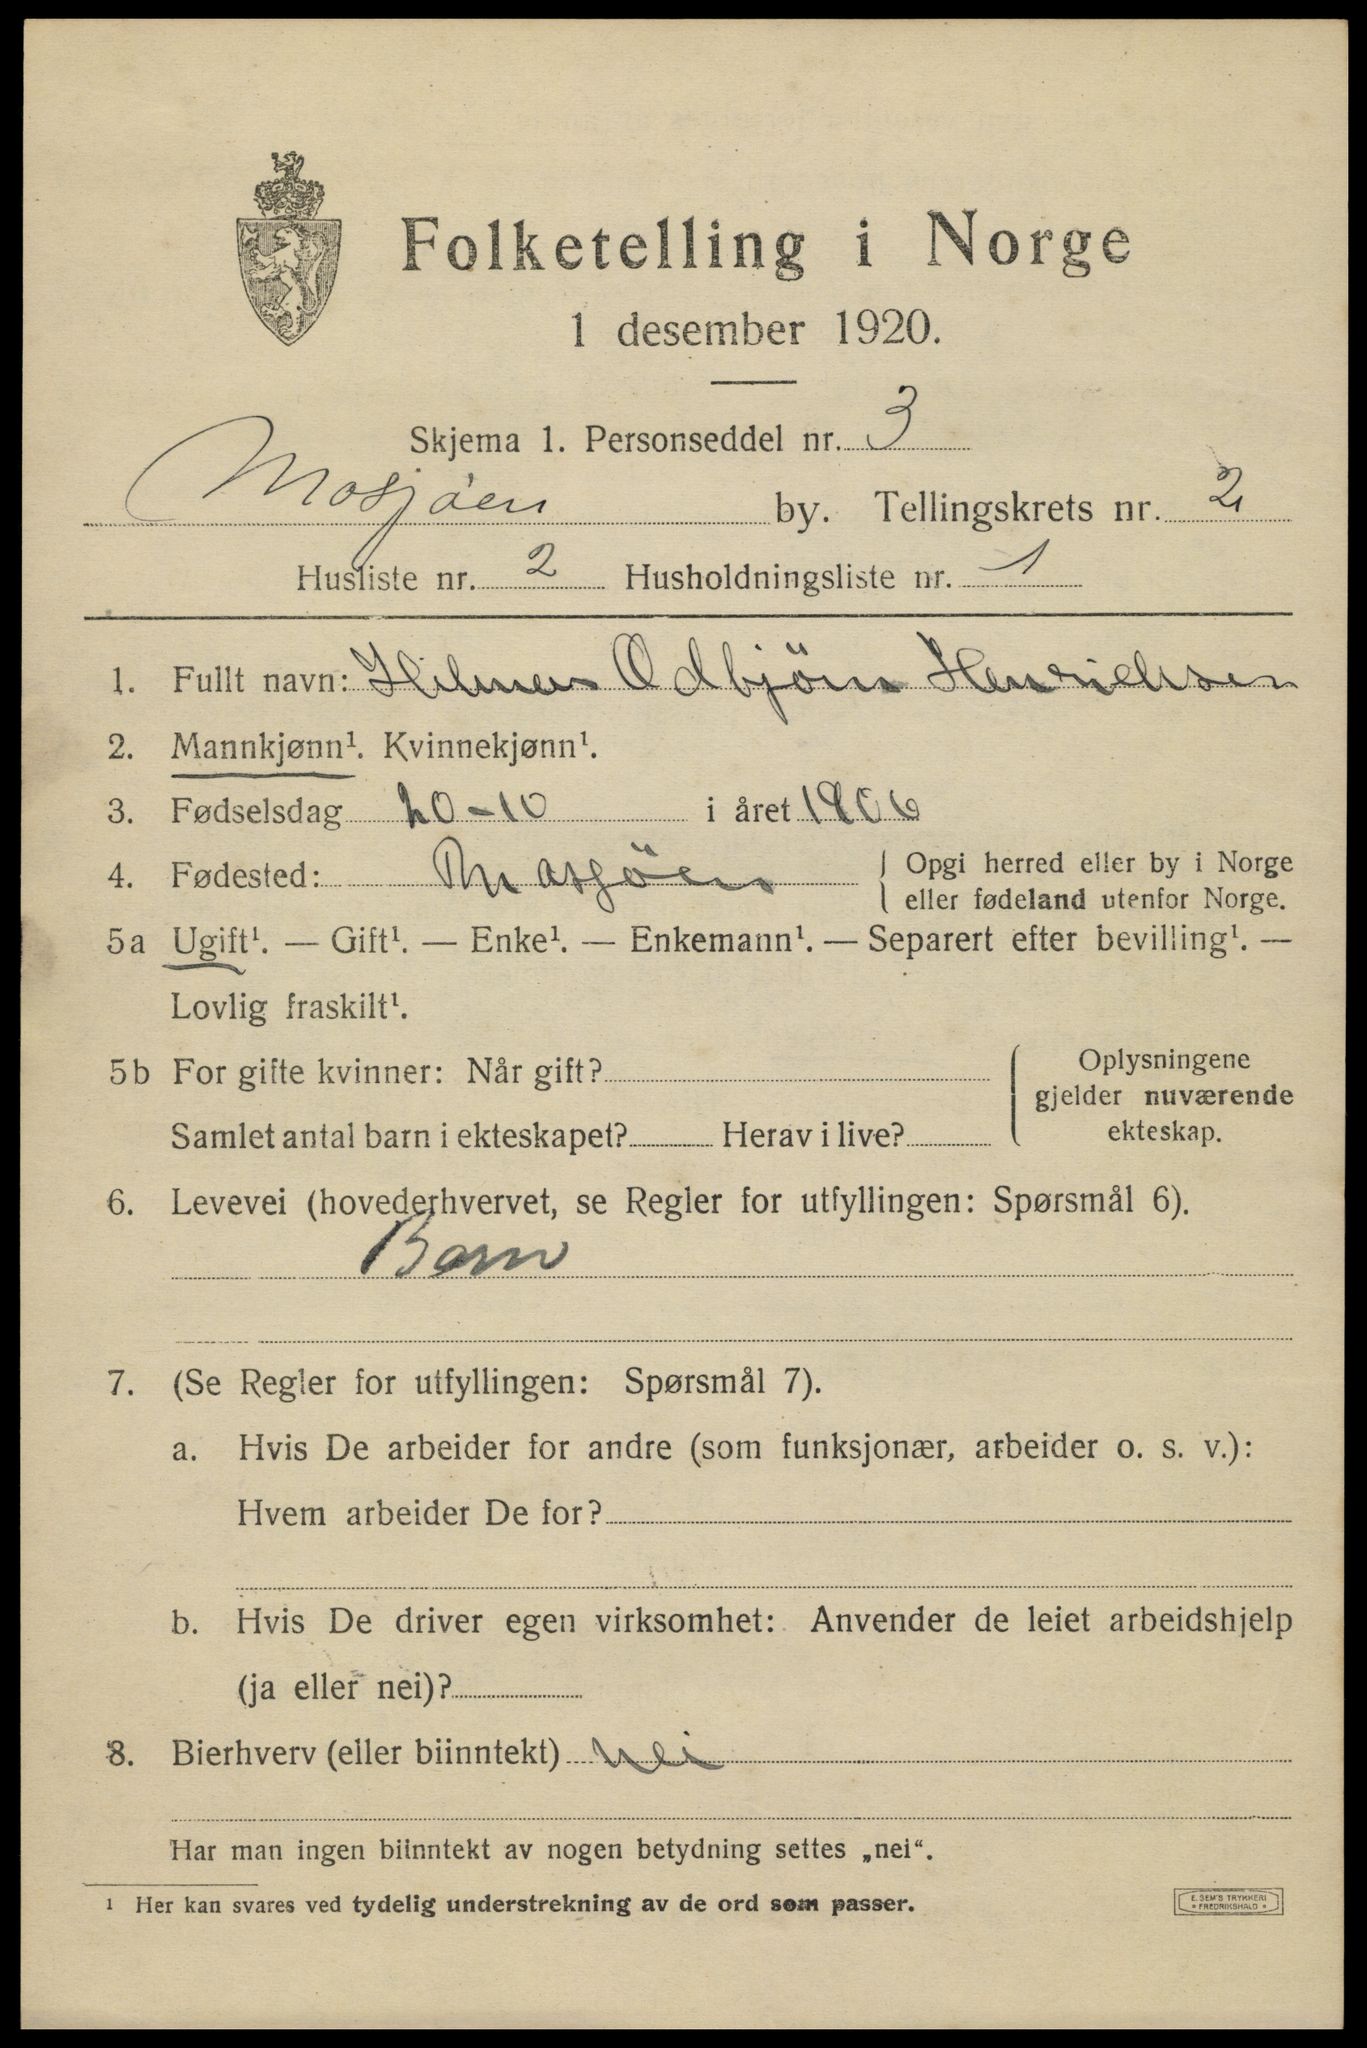 Folketelling i Norge
1 desember 1920.
Skjema 1. Personseddel nr. 3
Mosjöen by. Tellingskrets nr. 2
Husliste nr. 2 Husholdningsliste nr. 1
1. Fullt navn: Hilmar Odbjörn Henrichsen
2. Mannkjønn¹. Kvinnekjønn¹.
3. Fødselsdag 20-10 i året 1906
4. Fødested: Mosjöen { Opgi herred eller by i Norge
eller fødeland utenfor Norge.
5a Ugift¹. — Gift¹. — Enke¹. — Enkemann¹. — Separert efter bevilling¹. —
Lovlig fraskilt¹.
5b For gifte kvinner: Når gift?
Samlet antal barn i ekteskapet? Herav i live?
{ Oplysningene
gjelder nuværende
ekteskap.
6. Levevei (hovederhvervet, se Regler for utfyllingen: Spørsmål 6).
Barn
7. (Se Regler for utfyllingen: Spørsmål 7).
a. Hvis De arbeider for andre (som funksjonær, arbeider o. s. v.):
Hvem arbeider De for?
b. Hvis De driver egen virksomhet: Anvender de leiet arbeidshjelp
(ja eller nei)?
8. Bierhverv (eller biinntekt) nei
Har man ingen biinntekt av nogen betydning settes „nei“.
1 Her kan svares ved tydelig understrekning av de ord som passer.
E. SEM'S TRYKKERI
* FREDRIKSHALD *